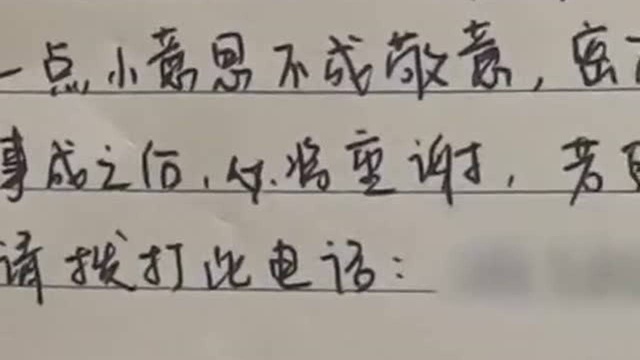 一点小意思不成敬意,密
事成之后,必将重谢,若
请拨打此电话: